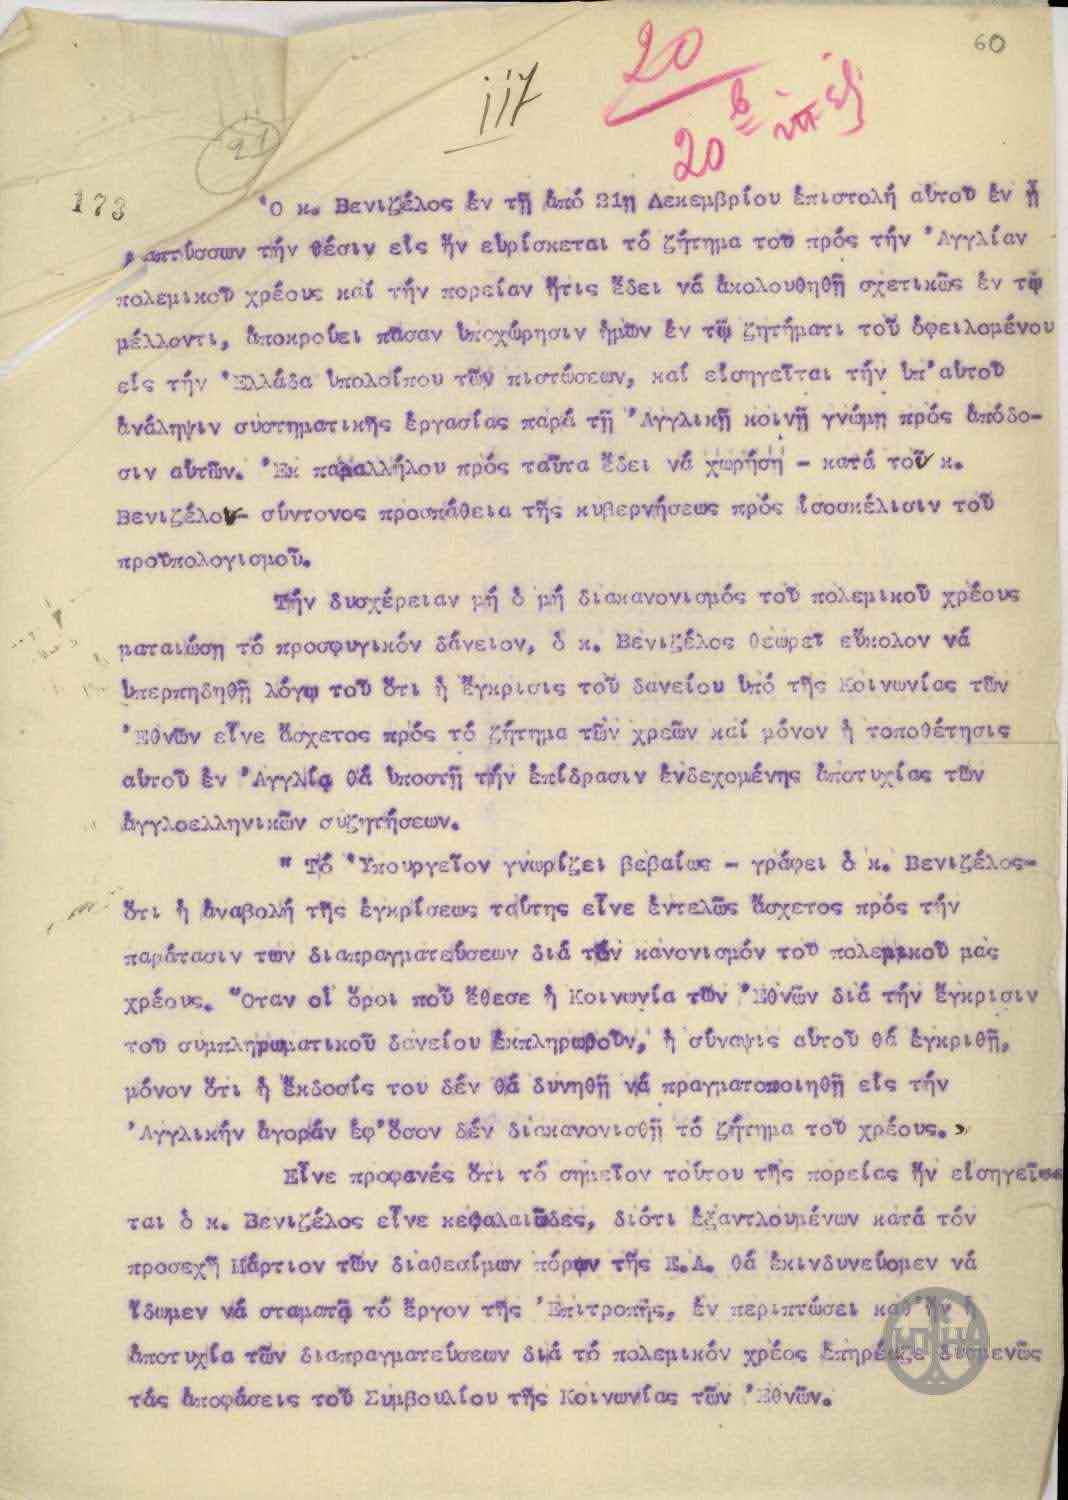 60
iii
20
20 β
21
173
Ὁ κ. Βενιζέλος ἐν τῇ ἀπό 21ῃ Δεκεμβρίου ἐπιστολῇ αὐτοῦ ἐν ᾗ
ἀπτύσσων τήν θέσιν εἰς ἥν εὑρίσκεται τό ζήτημα του πρός τήν Ἀγγλίαν
πολεμικοῦ χρέους καί τήν πορείαν ἥτις ἔδει νά ἀκολουθηθῇ σχετικῶς ἐν τῷ
μέλλοντι, ἀποκρούει πᾶσαν ὑποχώρησιν ἡμῶν ἐν τῷ ζητήματι τοῦ ὀφειλομένου
εἰς τήν Ἑλλάδα ὑπολοίπου τῶν πιστώσεων, καί εἰσηγεῖται τήν ὑπ'αὐτοῦ
ἀνάληψιν συστηματικῆς ἐργασίας παρά τῇ Ἀγγλικῇ κοινῇ γνώμῃ πρός ἀπόδο-
σιν αὐτῶν. Ἐκ παραλλήλου πρός ταῦτα ἔδει νά χωρήσῃ - κατά τοῦ κ.
Βενιζέλου - σύντονος προσπάθεια τῆς κυβερνήσεως πρός ἰσοσκέλισιν τοῦ
προϋπολογισμοῦ.
Τήν δυσχέρειαν μή ὁ μή διακανονισμός τοῦ πολεμικοῦ χρέους
ματαιώσῃ τό προσφυγικόν δάνειον, ὁ κ. Βενιζέλος θεωρεῖ εὔκολον νά
ὑπερπηδηθῇ λόγῳ τοῦ ὅτι ἡ ἔγκρισις τοῦ δανείου ὑπό τῆς Κοινωνίας τῶν
Ἐθνῶν εἶνε ἄσχετος πρός τό ζήτημα τῶν χρεῶν καί μόνον ἡ τοποθέτησις
αὐτοῦ ἐν Ἀγγλίᾳ θά ὑποστῇ τήν ἐπίδρασιν ἐνδεχομένης ἀποτυχίας τῶν
ἀγγλοελληνικῶν συζητήσεων.
" Τό Ὑπουργεῖον γνωρίζει βεβαίως - γράφει ὁ κ. Βενιζέλος-
ὅτι ἡ ἀναβολή τῆς ἐγκρίσεως ταύτης εἶνε ἐντελῶς ἄσχετος πρός τήν
παράτασιν των διαπραγματεύσεων διά τόν κανονισμόν τοῦ πολεμικοῦ μας
χρέους. Ὅταν οἱ ὅροι πού ἔθεσε ἡ Κοινωνία τῶν Ἐθνῶν διά τήν ἔγκρισιν
του συμπληρωματικοῦ δανείου ἐκπληρωθοῦν, ἡ σύναψις αὐτοῦ θά ἐγκριθῇ,
μόνον ὅτι ἡ ἔκδοσίς του δέν θά δυνηθῇ νά πραγματοποιηθῇ εἰς τήν
Ἀγγλικήν ἀγοράν ἐφ'ὅσον δέν διακανονισθῇ τό ζήτημα τοῦ χρέους.»
Εἶνε προφανές ὅτι τό σημεῖον τοῦτου τῆς πορείας ἥν εἰσηγεῖ-
ται ὁ κ. Βενιζέλος εἶνε κεφαλαιῶδες, διότι ἐξαντλουμένων κατά τόν
προσεχῆ Μάρτιον τῶν διαθεσίμων πόρων τῆς Ε.Α. θά ἐκινδυνεύομεν νά
ἴδωμεν νά σταματᾷ τό ἔργον τῆς Ἐπιτροπῆς, ἐν περιπτώσει καθ'ἥν ἡ
ἀποτυχία τῶν διαπραγματεύσεων διά τό πολεμικόν χρέος ἐπηρέαζε δυσμενῶς
τάς ἀποφάσεις τοῦ Συμβουλίου τῆς Κοινωνίας τῶν Ἐθνῶν.